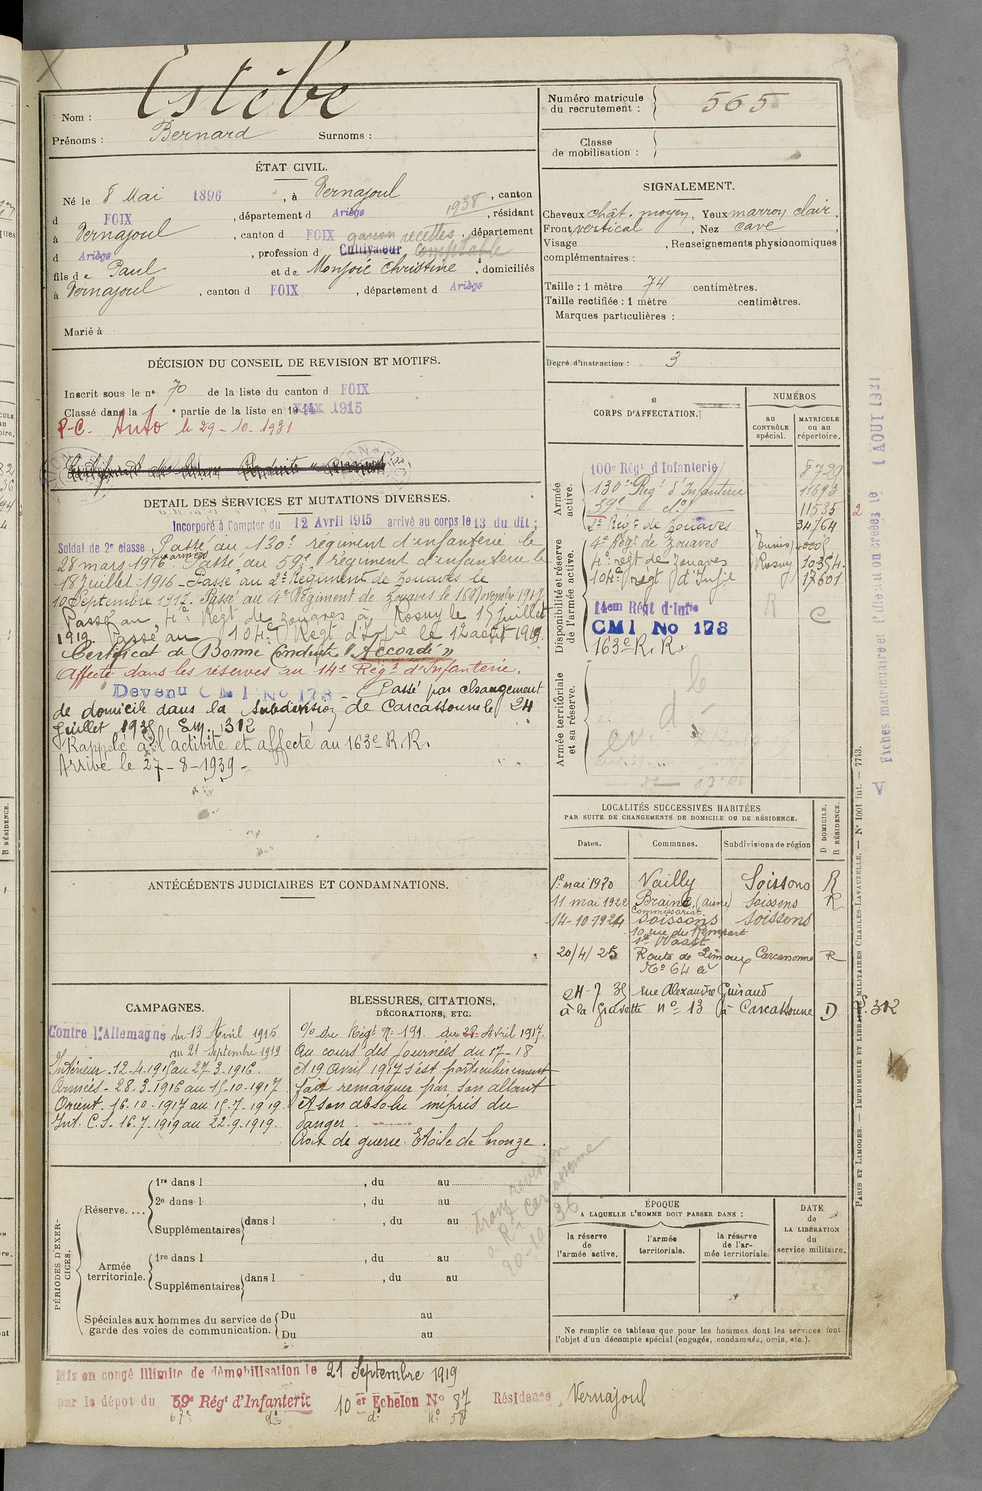 Nom : Estèbe
Prénoms : Bernard Surnoms :
ÉTAT CIVIL.
Né le 8 Mai 1896, à Vernajoul, canton
d FOIX, département d Ariège 1938, résidant
à Vernajoul, canton d FOIX garçon recettes, département
d Ariège, profession d Cultivateur Comptable
fils de Paul et de Monjoié Christine, domiciliés
à Vernajoul, canton d FOIX, département d Ariège
Marié à
DÉCISION DU CONSEIL DE REVISION ET MOTIFS.
Inscrit sous le n° 70 de la liste du canton d FOIX
Classé dans la 1 e partie de la liste en 1915
P-C. Auto le 29-10-1931
DETAIL DES SERVICES ET MUTATIONS DIVERSES.
Incorporé à Compter du 12 Avril 1915 arrivé au corps le 13 du dit ;
Soldat de 2e classe Passé au 130e régiment d'infanterie le
28 mars 1916. Passé au 59e régiment d'infanterie le
18 Juillet 1916 - Passé au 2e Régiment de Zouaves le
10 Septembre 1917. Passé au 4e Régiment de Zouaves le 16 Novembre 1917
Passé au 4e Regt de Zouaves à Rosny le 15 juillet
1919. Passé au 104e Regt d'Infre le 13 août 1919.
Certificat de Bonne Conduite "Accordé"
Affecté dans les réserves au 14e Régt d'Infanterie.
Devenu CMI No 178 - Passé par changement
de domicile dans la subdivision de Carcassonne le 24
Juillet 1935, Em. 312
Rappelé à l'activité et affecté au 163e R.R.
Arrivé le 27-8-1939-
ANTÉCÉDENTS JUDICIAIRES ET CONDAMNATIONS.
CAMPAGNES.
Contre l'Allemagne du 13 Avril 1915
au 21 Septembre 1919
Intérieur. 12-4-1915 au 27-3-1916.
Armées - 28-3-1916 au 15-10-1917
Orient - 16-10-1917 au 15-7-1919
Int. C.S. 16-7-1919 au 22-9-1919.
BLESSURES, CITATIONS,
DÉCORATIONS, ETC.
O/ du Régt N° 191 du 28 Avril 1917.
Au cours des Journées du 17-18
et 19 Avril 1917 s'est particulièrement
fait remarquer par son allant
et son absolu mépris du
danger.
Croix de guerre Etoile de bronze.
PÉRIODES D'EXERCICES.
Réserve....
1re dans l , du au
2e dans l , du au
Supplémentaires dans l , du au
Armée territoriale.
1re dans l , du au
Supplémentaires dans l , du au
Spéciales aux hommes du service de garde des voies de communication.
Du au
Du au
Mis en congé illimité de démobilisation le 21 Septembre 1919
par le dépôt du 59e Régt d'Infanterie 10 er Echelon No 87 Résidence, Vernajoul
Numéro matricule
du recrutement : 565
Classe
de mobilisation :
SIGNALEMENT.
Cheveux chât. moyen, Yeux marron clair,
Front vertical, Nez cavé,
Visage , Renseignements physionomiques
complémentaires :
Taille : 1 mètre 74 centimètres.
Taille rectifiée : 1 mètre centimètres.
Marques particulières :
Degré d'instruction : 3
CORPS D'AFFECTATION.
NUMÉROS
AU CONTRÔLE spécial.
MATRICULE OU AU répertoire.
Armée active.
100e Régt d'Infanterie 8729
130e Régt d'Infanterie 11693
59e do 11535
2e Régt de Zouaves 34764
Disponibilité et réserve de l'armée active.
4e Régt de Zouaves Tunis
4e régt de Zouaves Rosny
104e regt d'Infie 17601
14em Régt d'Infie
CMI No 178
163e R.R.
R C
Armée territoriale et sa réserve.
LOCALITÉS SUCCESSIVES HABITÉES
PAR SUITE DE CHANGEMENTS DE DOMICILE OU DE RÉSIDENCE.
Dates. Communes. Subdivisions de région D DOMICILE. R RÉSIDENCE.
1er mai 1920 Vailly Soissons R
11 mai 1922 Braine (aisne) Soissons R
14-10-1924 Commissariat Soissons Soissons
10 rue du Rempart
St Waast
20/4/25 Route de Limoux Carcassonne R
No 64 a
24-7 35 rue Alexandre Guiraud
à la Gravette no 13 à Carcassonne D E. 312
ÉPOQUE
A LAQUELLE L'HOMME DOIT PASSER DANS :
la réserve de l'armée active.
l'armée territoriale.
la réserve de l'armée territoriale.
DATE de LA LIBÉRATION du service militaire.
Ne remplir ce tableau que pour les hommes dont les services font
l'objet d'un décompte spécial (engagés, condamnés, omis, etc.).
20-10 36
Fiches matriculaire et d'affectation créées le 1 AOUT 1921
PARIS ET LIMOGES. — IMPRIMERIE ET LIBRAIRIE MILITAIRES CHARLES-LAVAUZELLE. — N° 1001 int. — 7713.